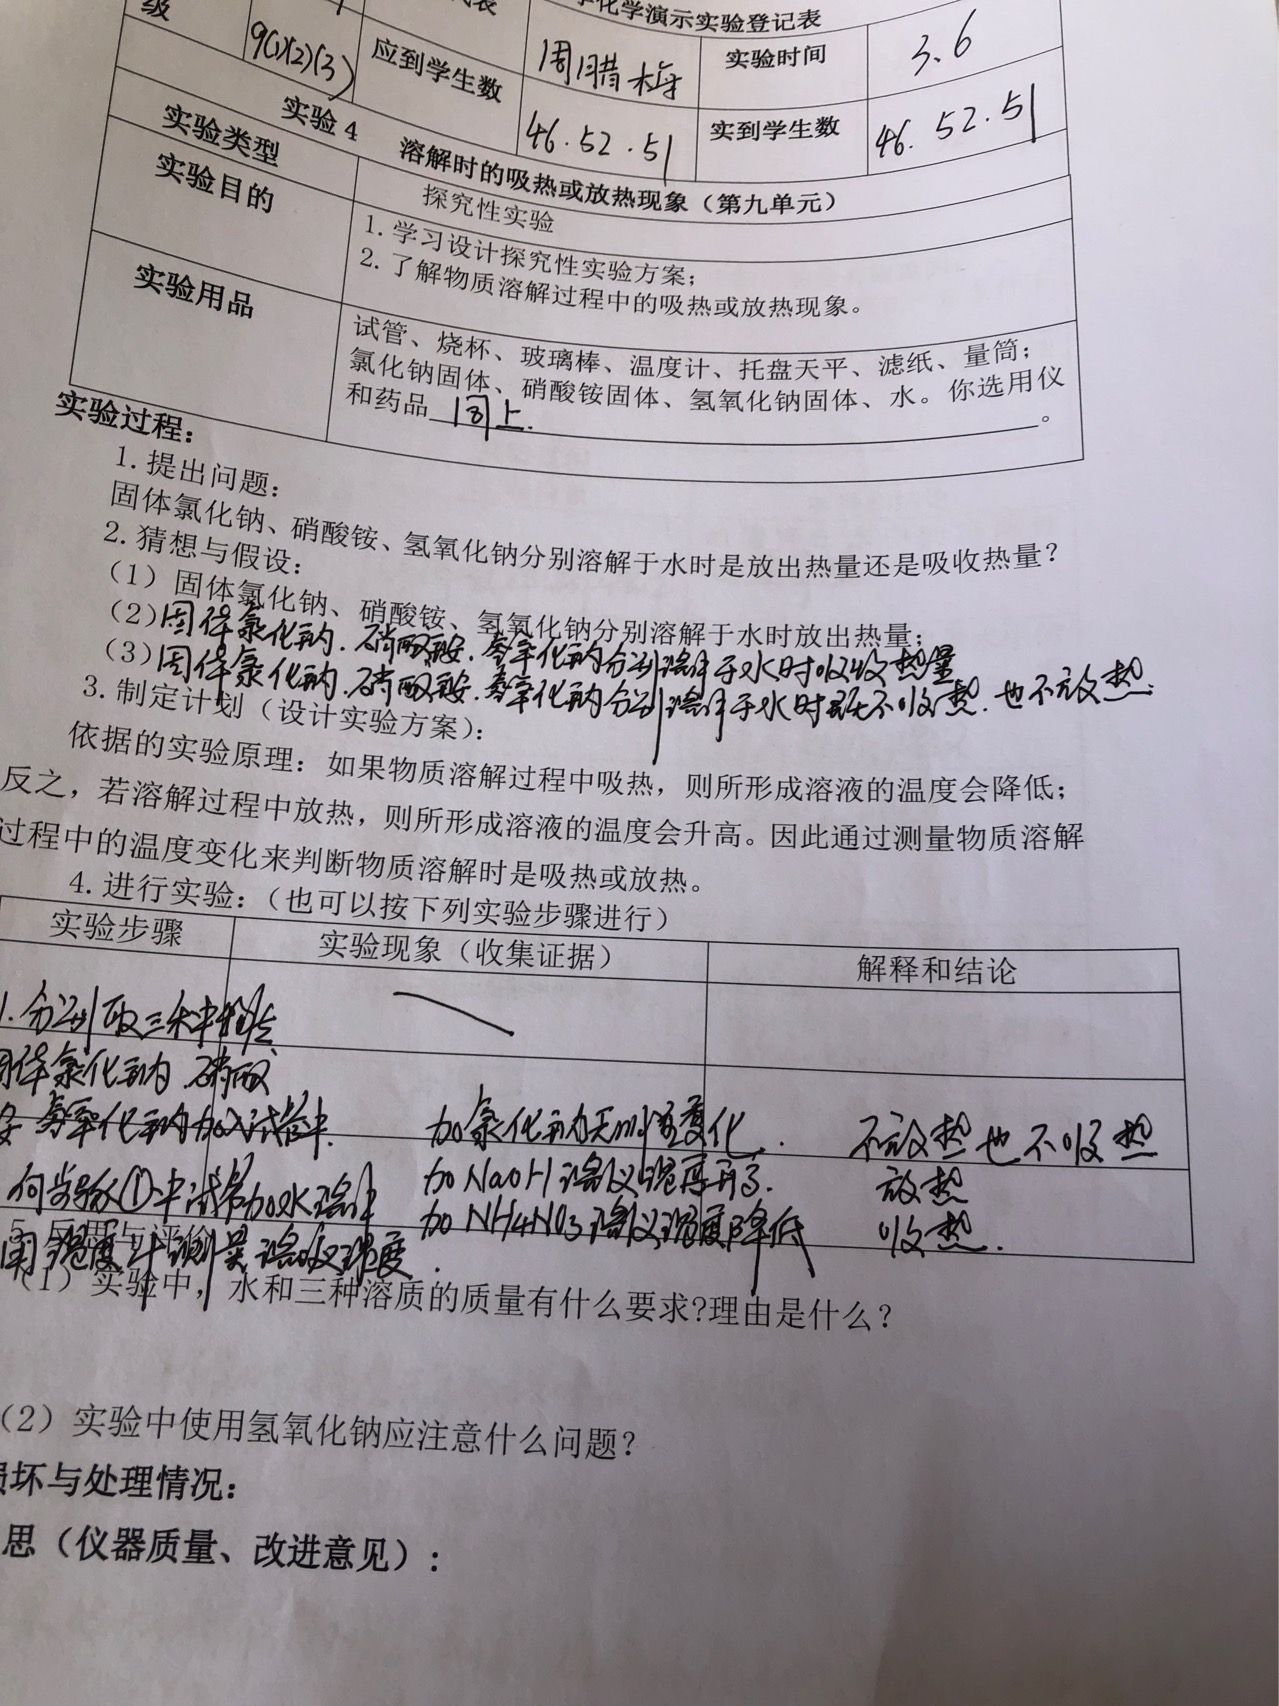 化学演示实验登记表
级
9(1)(2)(3)
应到学生数
周腊梅
实验时间
3.6
46.52.51
实到学生数
46.52.51
实验4 溶解时的吸热或放热现象（第九单元）
实验类型
探究性实验
实验目的
1.学习设计探究性实验方案；
2.了解物质溶解过程中的吸热或放热现象。
实验用品
试管、烧杯、玻璃棒、温度计、托盘天平、滤纸、量筒；
氯化钠固体、硝酸铵固体、氢氧化钠固体、水。你选用仪
和药品 同上. 。
实验过程：
1.提出问题：
固体氯化钠、硝酸铵、氢氧化钠分别溶解于水时是放出热量还是吸收热量？
2.猜想与假设：
（1）固体氯化钠、硝酸铵、氢氧化钠分别溶解于水时放出热量；
（2）固体氯化钠.硝酸铵.氢氧化钠分别溶解于水时吸收热量
（3）固体氯化钠.硝酸铵.氢氧化钠分别溶解于水时既不吸热.也不放热.
3.制定计划（设计实验方案）：
依据的实验原理：如果物质溶解过程中吸热，则所形成溶液的温度会降低；
反之，若溶解过程中放热，则所形成溶液的温度会升高。因此通过测量物质溶解
过程中的温度变化来判断物质溶解时是吸热或放热。
4.进行实验：（也可以按下列实验步骤进行）
实验步骤 实验现象（收集证据） 解释和结论
1.分别取三种
固体氯化钠.硝酸
氢氧化钠加入试管中.
加氯化钠无明显变化.
不放热也不吸热
向步骤①中试管加水溶解
加NaOH溶液温度升高.
放热
加NH4NO3溶液温度降低
吸热.
用温度计测量溶液温度.
（1）实验中，水和三种溶质的质量有什么要求?理由是什么？
（2）实验中使用氢氧化钠应注意什么问题？
损坏与处理情况：
思（仪器质量、改进意见）：